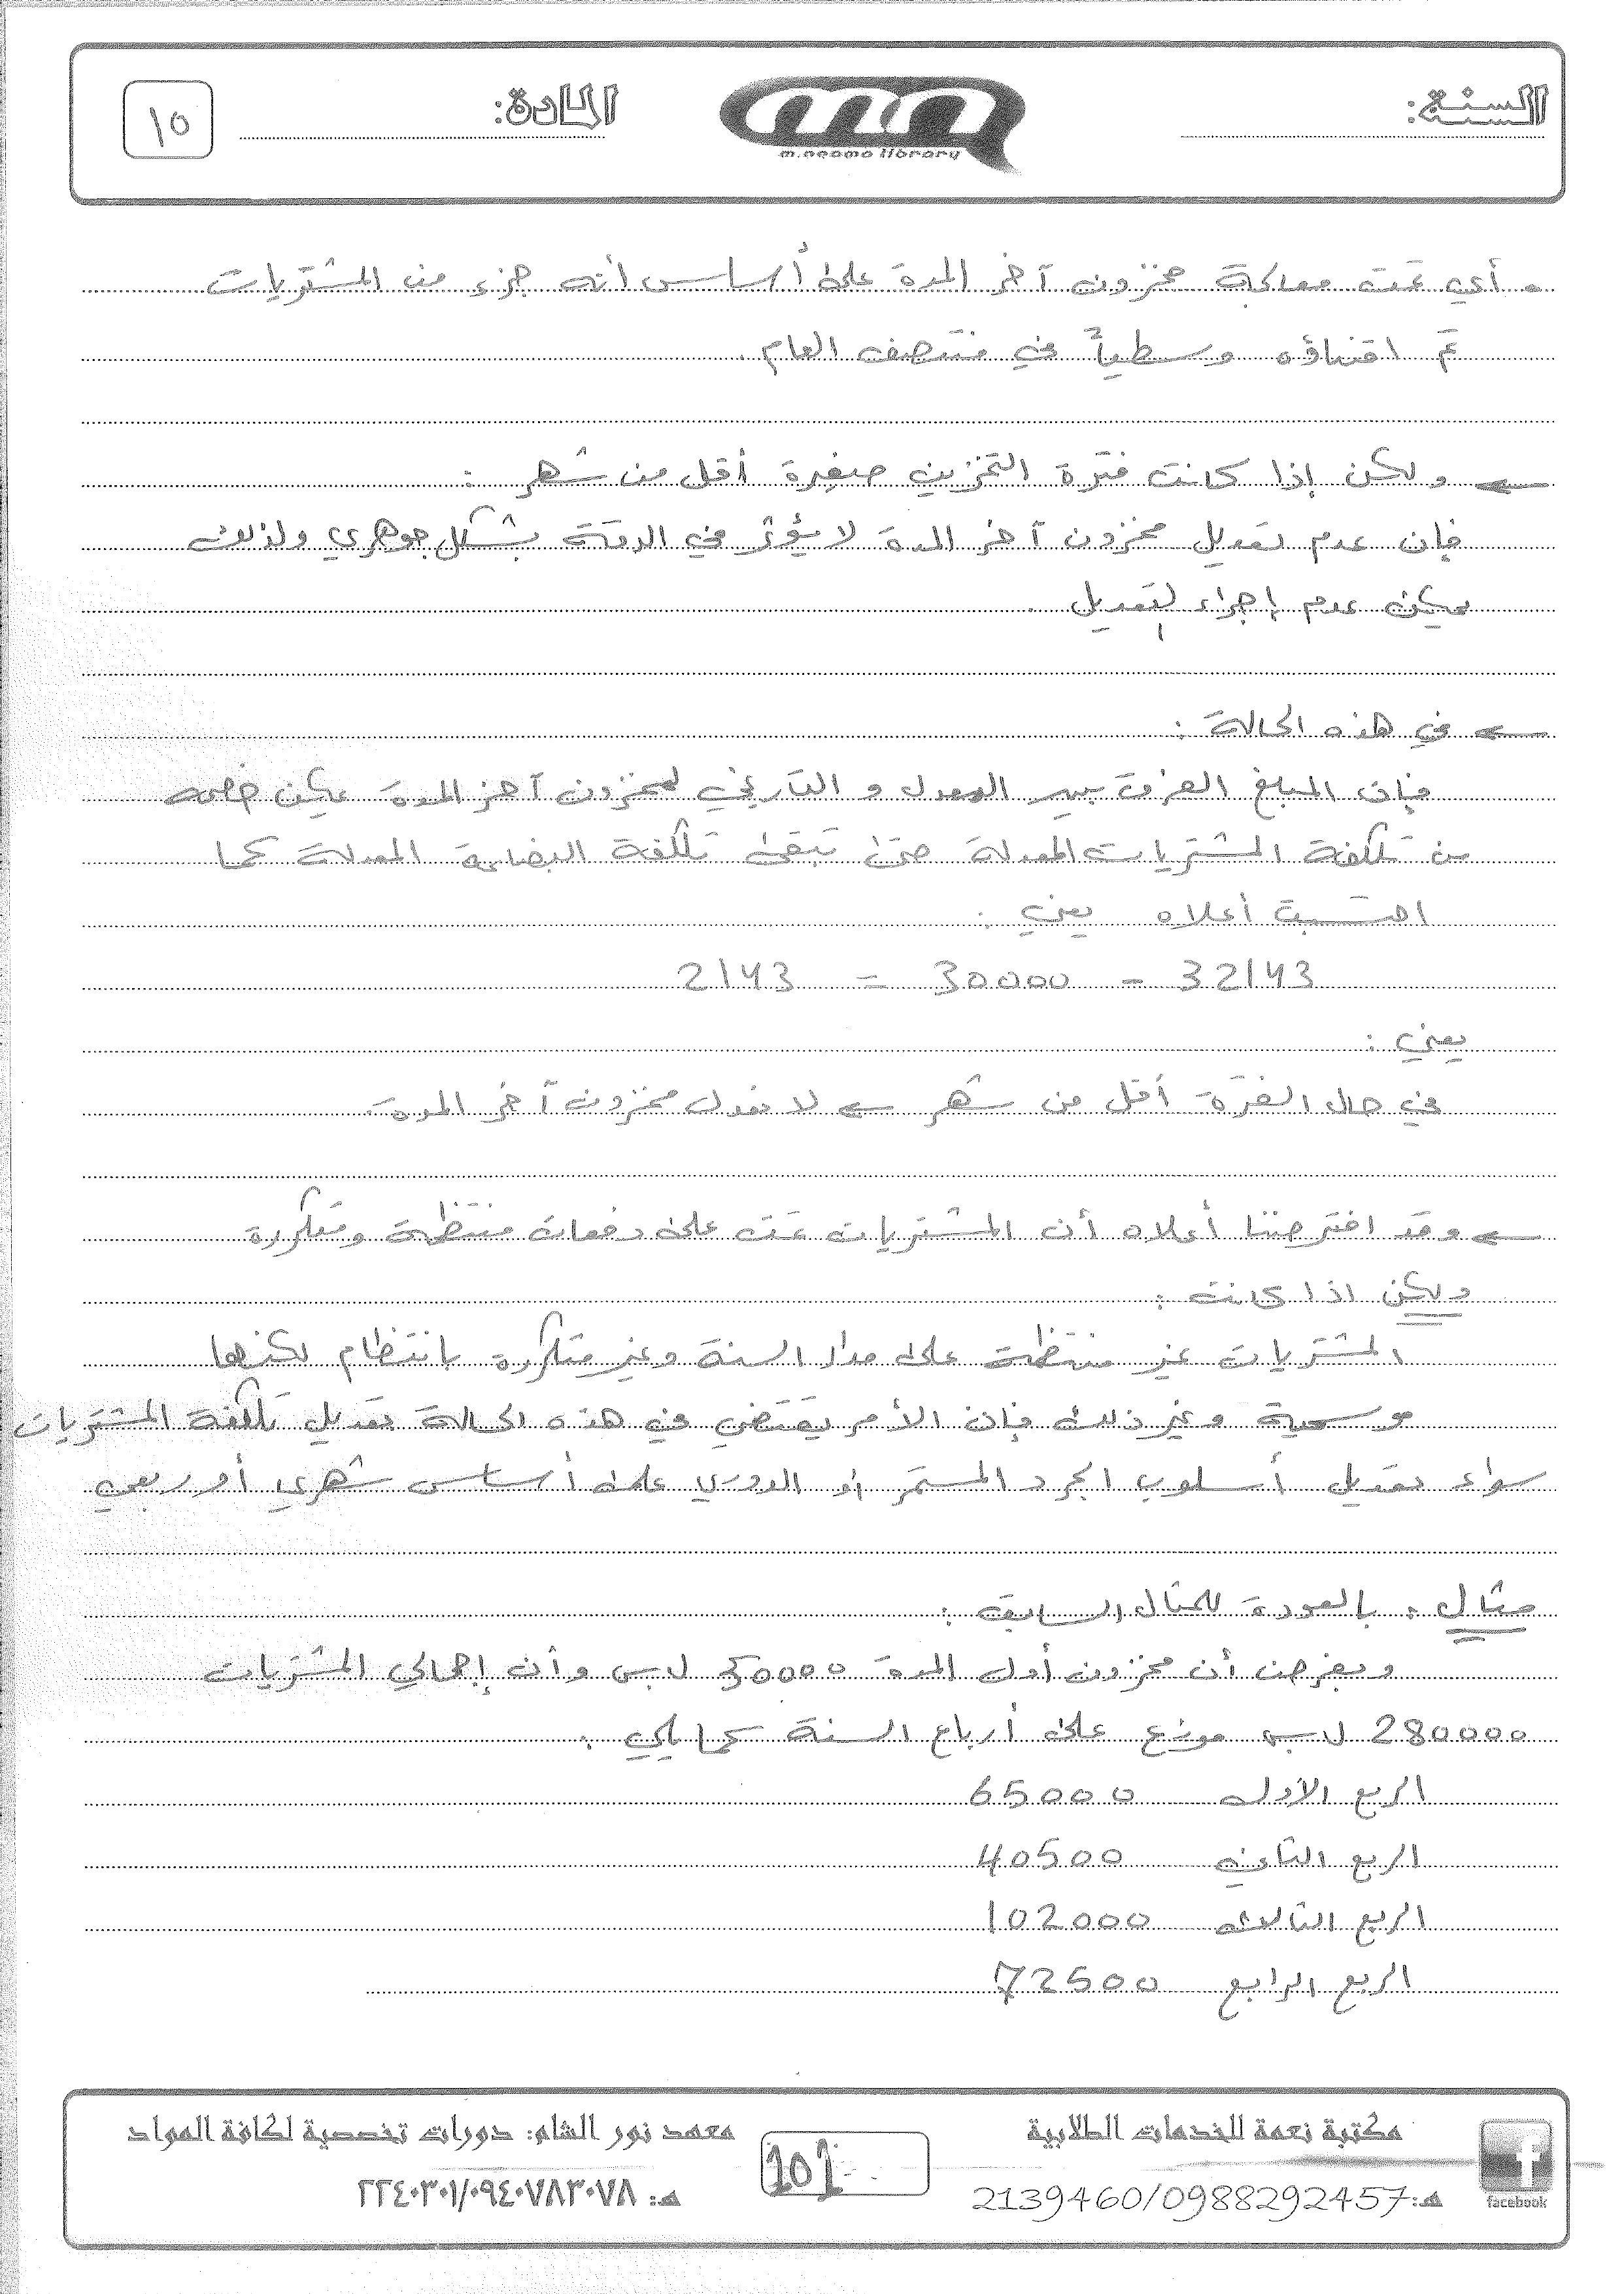 السنة:
المادة:
١٥
m.neama library
• أي تمت معالجة مخزون آخر المدة على أساس أنه جزء من المشتريات
تم اقتناؤه وسطياً في منتصف العام .
← ولكن إذا كانت فترة التخزين صغيرة أقل من شهر :
فإن عدم تعديل مخزون آخر المدة لا يؤثر في الدقة بشكل جوهري ولذلك
يمكن عدم إجراء التعديل .
← في هذه الحالة :
فإن المبلغ الفرق بين المعدل و التاريخي لمخزون آخر المدة يمكن خصمه
من تكلفة المشتريات المعدلة حتى تبقى تكلفة البضاعة المعدلة كما
احتسبت أعلاه يعني :
32143 - 30000 = 2143
يعني :
في حال الفترة أقل من شهر ← لا نعدل مخزون آخر المدة.
← وقد افترضنا أعلاه أن المشتريات تمت على دفعات منتظمة ومتكررة
ولكن اذا كانت :
المشتريات غير منتظمة على مدار السنة وغير متكررة بانتظام لكنها
موسمية وغير ذلك فإن الأمر يقتضي في هذه الحالة تعديل تكلفة المشتريات
سواء بتعديل أسلوب الجرد المستمر أو الدوري على أساس شهري أو ربعي
مثال : بالعودة للمثال السابق :
وبفرض أن مخزون أول المدة 50000 ل.س وأن إجمالي المشتريات
280000 ل.س موزع على أرباع السنة كما يلي :
الربع الأول 65000
الربع الثاني 40500
الربع الثالث 102000
الربع الرابع 72500
مكتبة نعمة للخدمات الطلابية
هـ:2139460/0988292457
facebook
101
معهد نور الشام: دورات تخصصية لكافة المواد
هـ: ٢٢٤٠٣٠١/٠٩٤٠٧٨٣٠٧٨